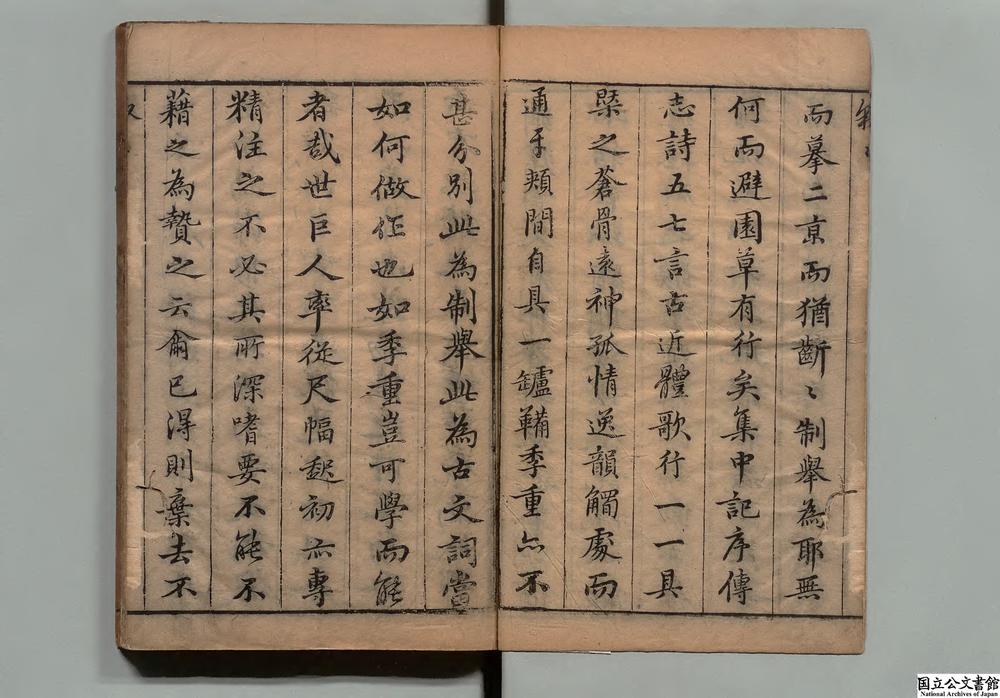 而摹二京而猶斷〻制舉為耶無
何而避園草有行矣集中記序傳
志詩五七言古近體歌行一一具
槩之蒼骨遠神孤情逸韻觸處而
通牙頰間自具一罏鞴季重亦不
甚分別此為制舉此為古文詞當
如何做作也如季重豈可學而能
者哉世巨人率從尺幅起初亦專
精注之不必其所深嗜要不能不
藉之為贄之云爾已得則棄去不
国立公文書館
National Archives of Japan